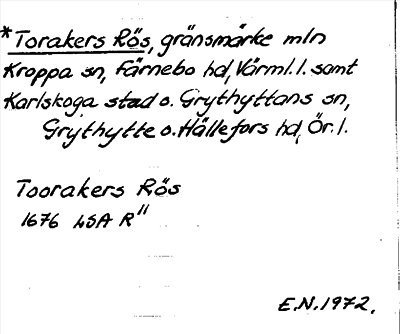 *Torakers Rös, gränsmärke mln
Kroppa sn, Färnebo hd, Värml. l. samt
Karlskoga stad o. Grythyttans sn,
Grythytte o. Hällefors hd, Ör. l.
Toorakers Rös
1676 LSA R"
E.N. 1972.